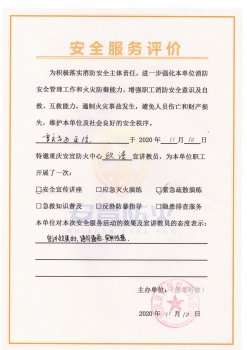 安全服务评价
为积极落实消防安全主体责任，进一步强化本单位消防
安全管理工作和火灾防御能力，增强职工消防安全意识及自
救、互救能力，遏制火灾事故发生，避免人员伤亡和财产损
失，维护本单位及社会良好的安全秩序。
于 2020 年 11 月 10 日
特邀重庆安宣防火中心 宣讲教员，为本单位职工
开展了一次：
安全宣传讲座 □应急灭火演练 紧急疏散演练
□急救知识普及 □反恐防暴指导 □隐患排查服务
本单位对本次安全服务活动的效果及宣讲教员的态度表示：
安宣防火
主办单位：（盖章有效）
2020 年 11 月 10 日